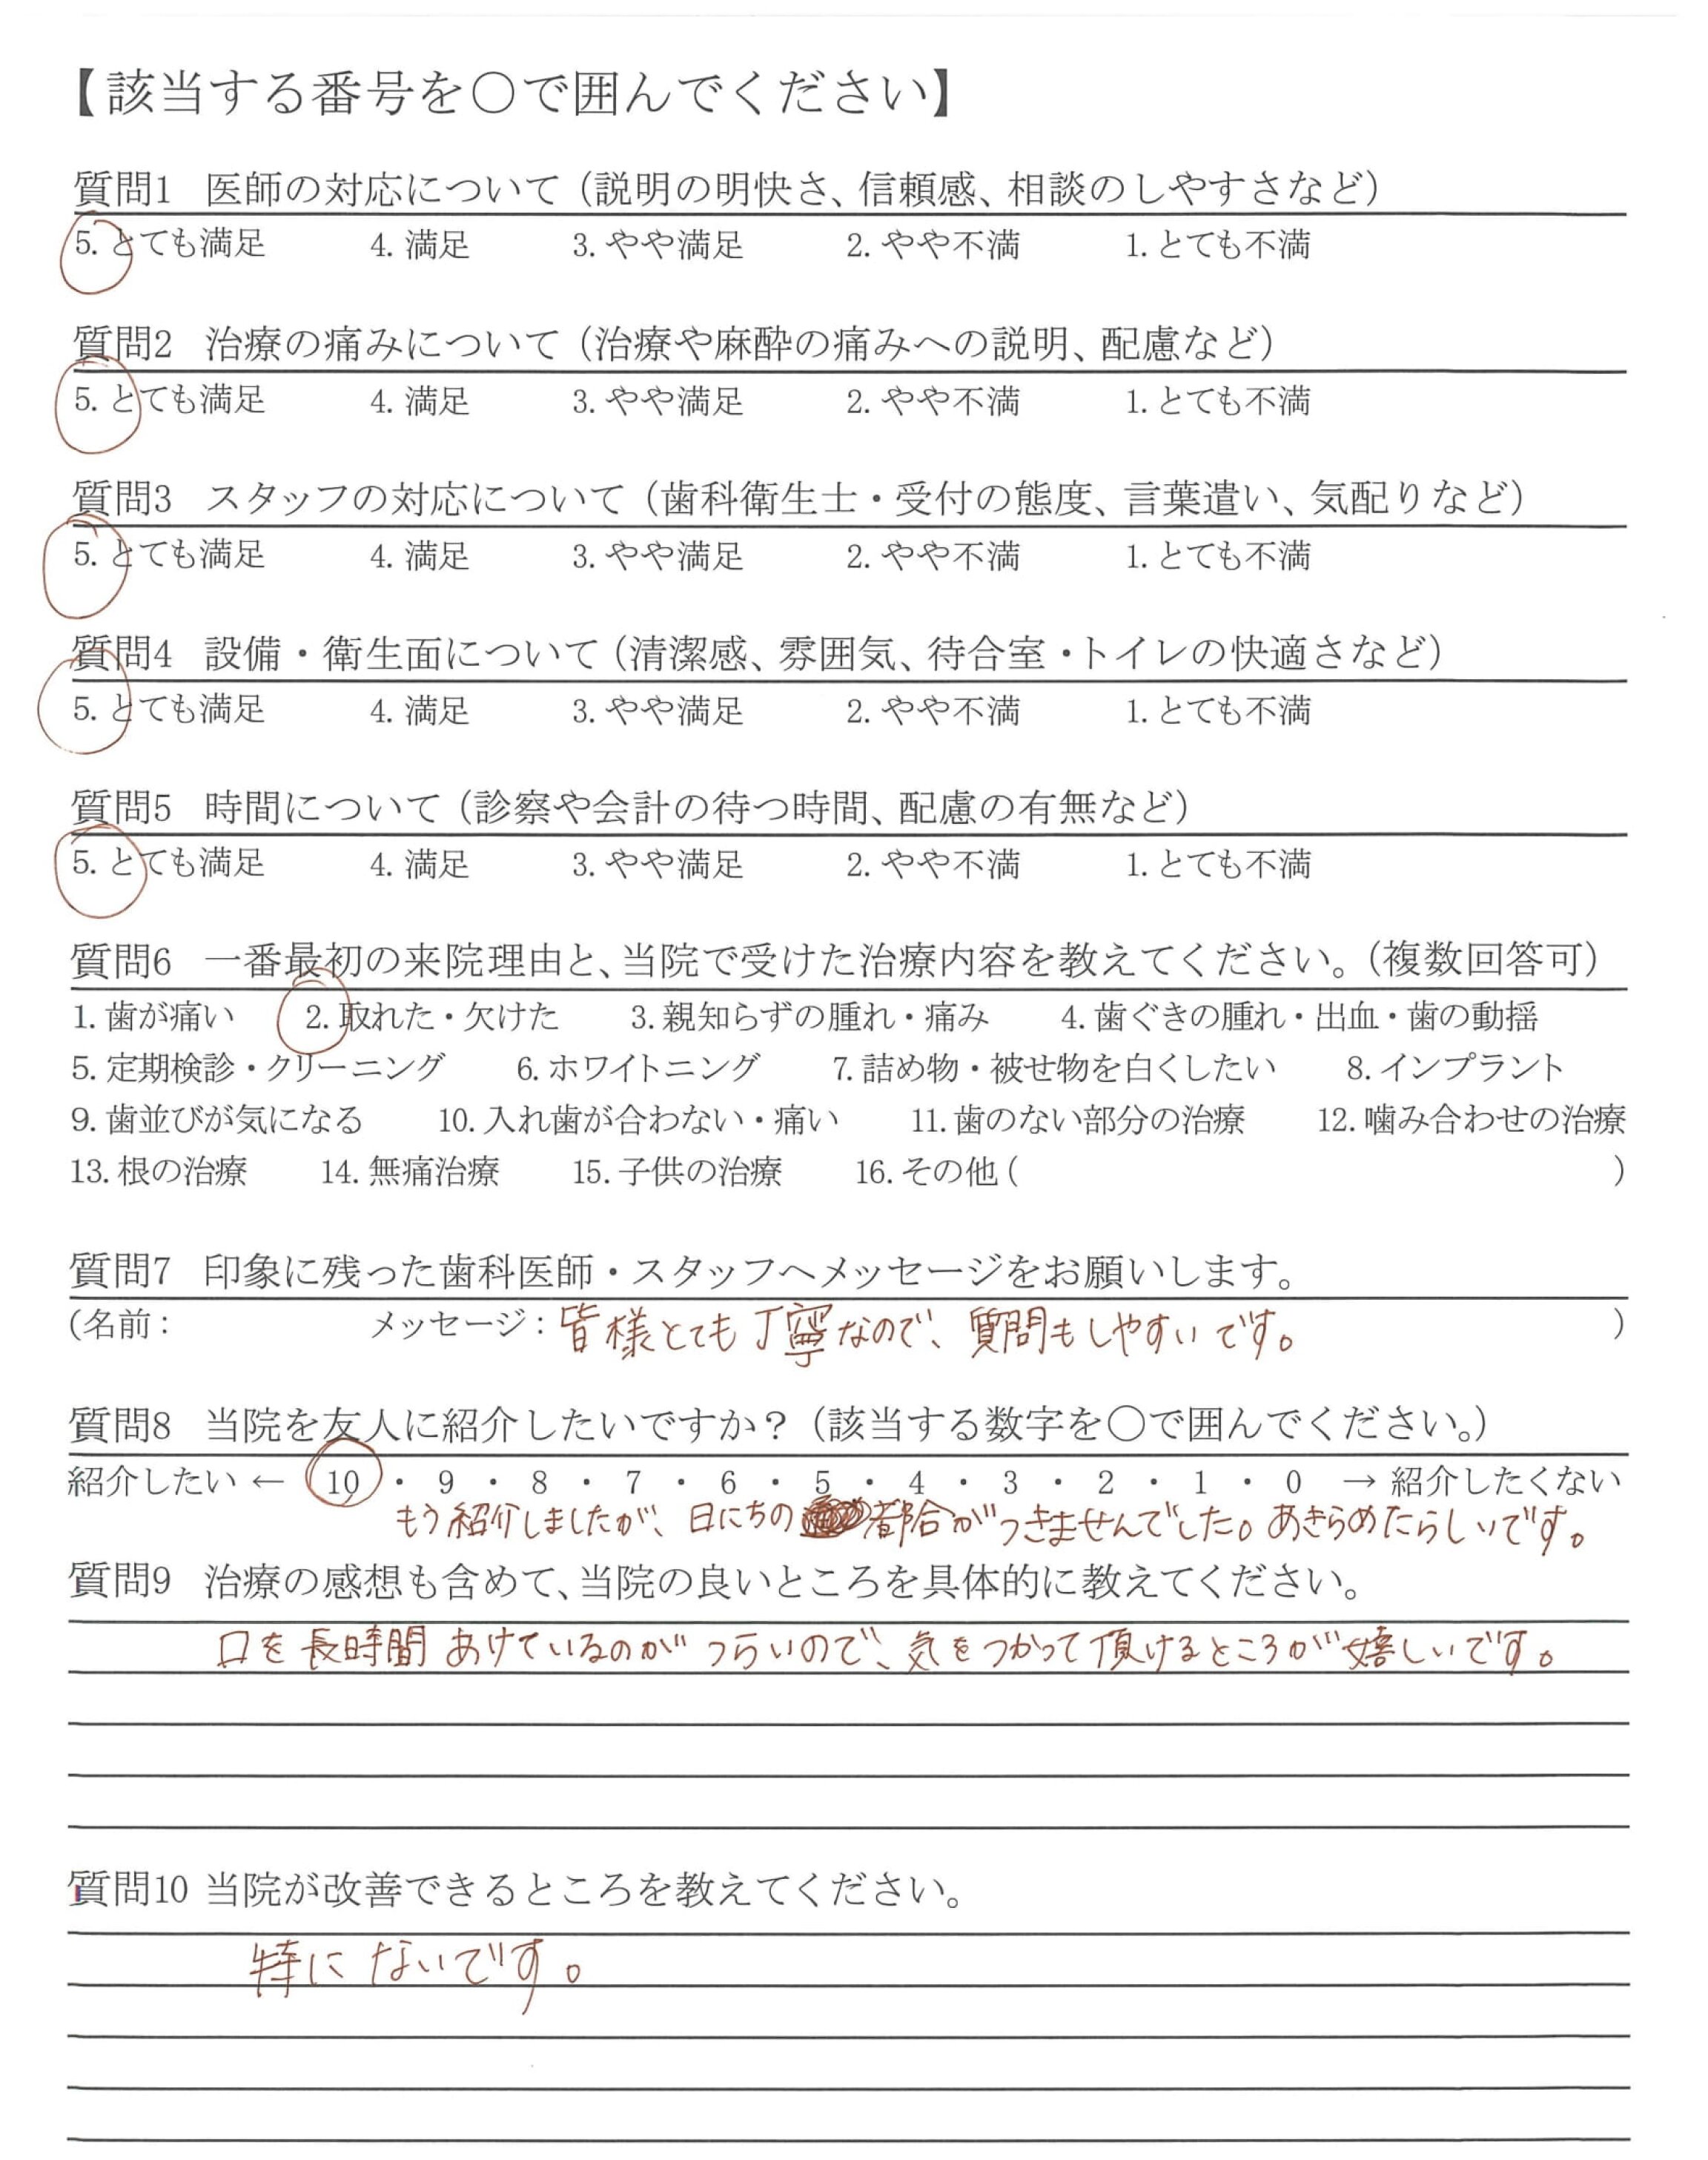 【該当する番号を○で囲んでください】
質問1 医師の対応について（説明の明快さ、信頼感、相談のしやすさなど）
5. とても満足 4. 満足 3. やや満足 2. やや不満 1. とても不満
質問2 治療の痛みについて（治療や麻酔の痛みへの説明、配慮など）
5. とても満足 4. 満足 3. やや満足 2. やや不満 1. とても不満
質問3 スタッフの対応について（歯科衛生士・受付の態度、言葉遣い、気配りなど）
5. とても満足 4. 満足 3. やや満足 2. やや不満 1. とても不満
質問4 設備・衛生面について（清潔感、雰囲気、待合室・トイレの快適さなど）
5. とても満足 4. 満足 3. やや満足 2. やや不満 1. とても不満
質問5 時間について（診察や会計の待つ時間、配慮の有無など）
5. とても満足 4. 満足 3. やや満足 2. やや不満 1. とても不満
質問6 一番最初の来院理由と、当院で受けた治療内容を教えてください。（複数回答可）
1. 歯が痛い 2. 取れた・欠けた 3. 親知らずの腫れ・痛み 4. 歯ぐきの腫れ・出血・歯の動揺
5. 定期検診・クリーニング 6. ホワイトニング 7. 詰め物・被せ物を白くしたい 8. インプラント
9. 歯並びが気になる 10. 入れ歯が合わない・痛い 11. 歯のない部分の治療 12. 噛み合わせの治療
13. 根の治療 14. 無痛治療 15. 子供の治療 16. その他（ ）
質問7 印象に残った歯科医師・スタッフへメッセージをお願いします。
（名前： メッセージ：皆様とても丁寧なので、質問もしやすいです。 ）
質問8 当院を友人に紹介したいですか？（該当する数字を○で囲んでください。）
紹介したい ← 10 ・ 9 ・ 8 ・ 7 ・ 6 ・ 5 ・ 4 ・ 3 ・ 2 ・ 1 ・ 0 → 紹介したくない
もう紹介しましたが、日にちの都合がつきませんでした。あきらめたらしいです。
質問9 治療の感想も含めて、当院の良いところを具体的に教えてください。
口を長時間あけているのがつらいので、気をつかって頂けるところが嬉しいです。
質問10 当院が改善できるところを教えてください。
特にないです。